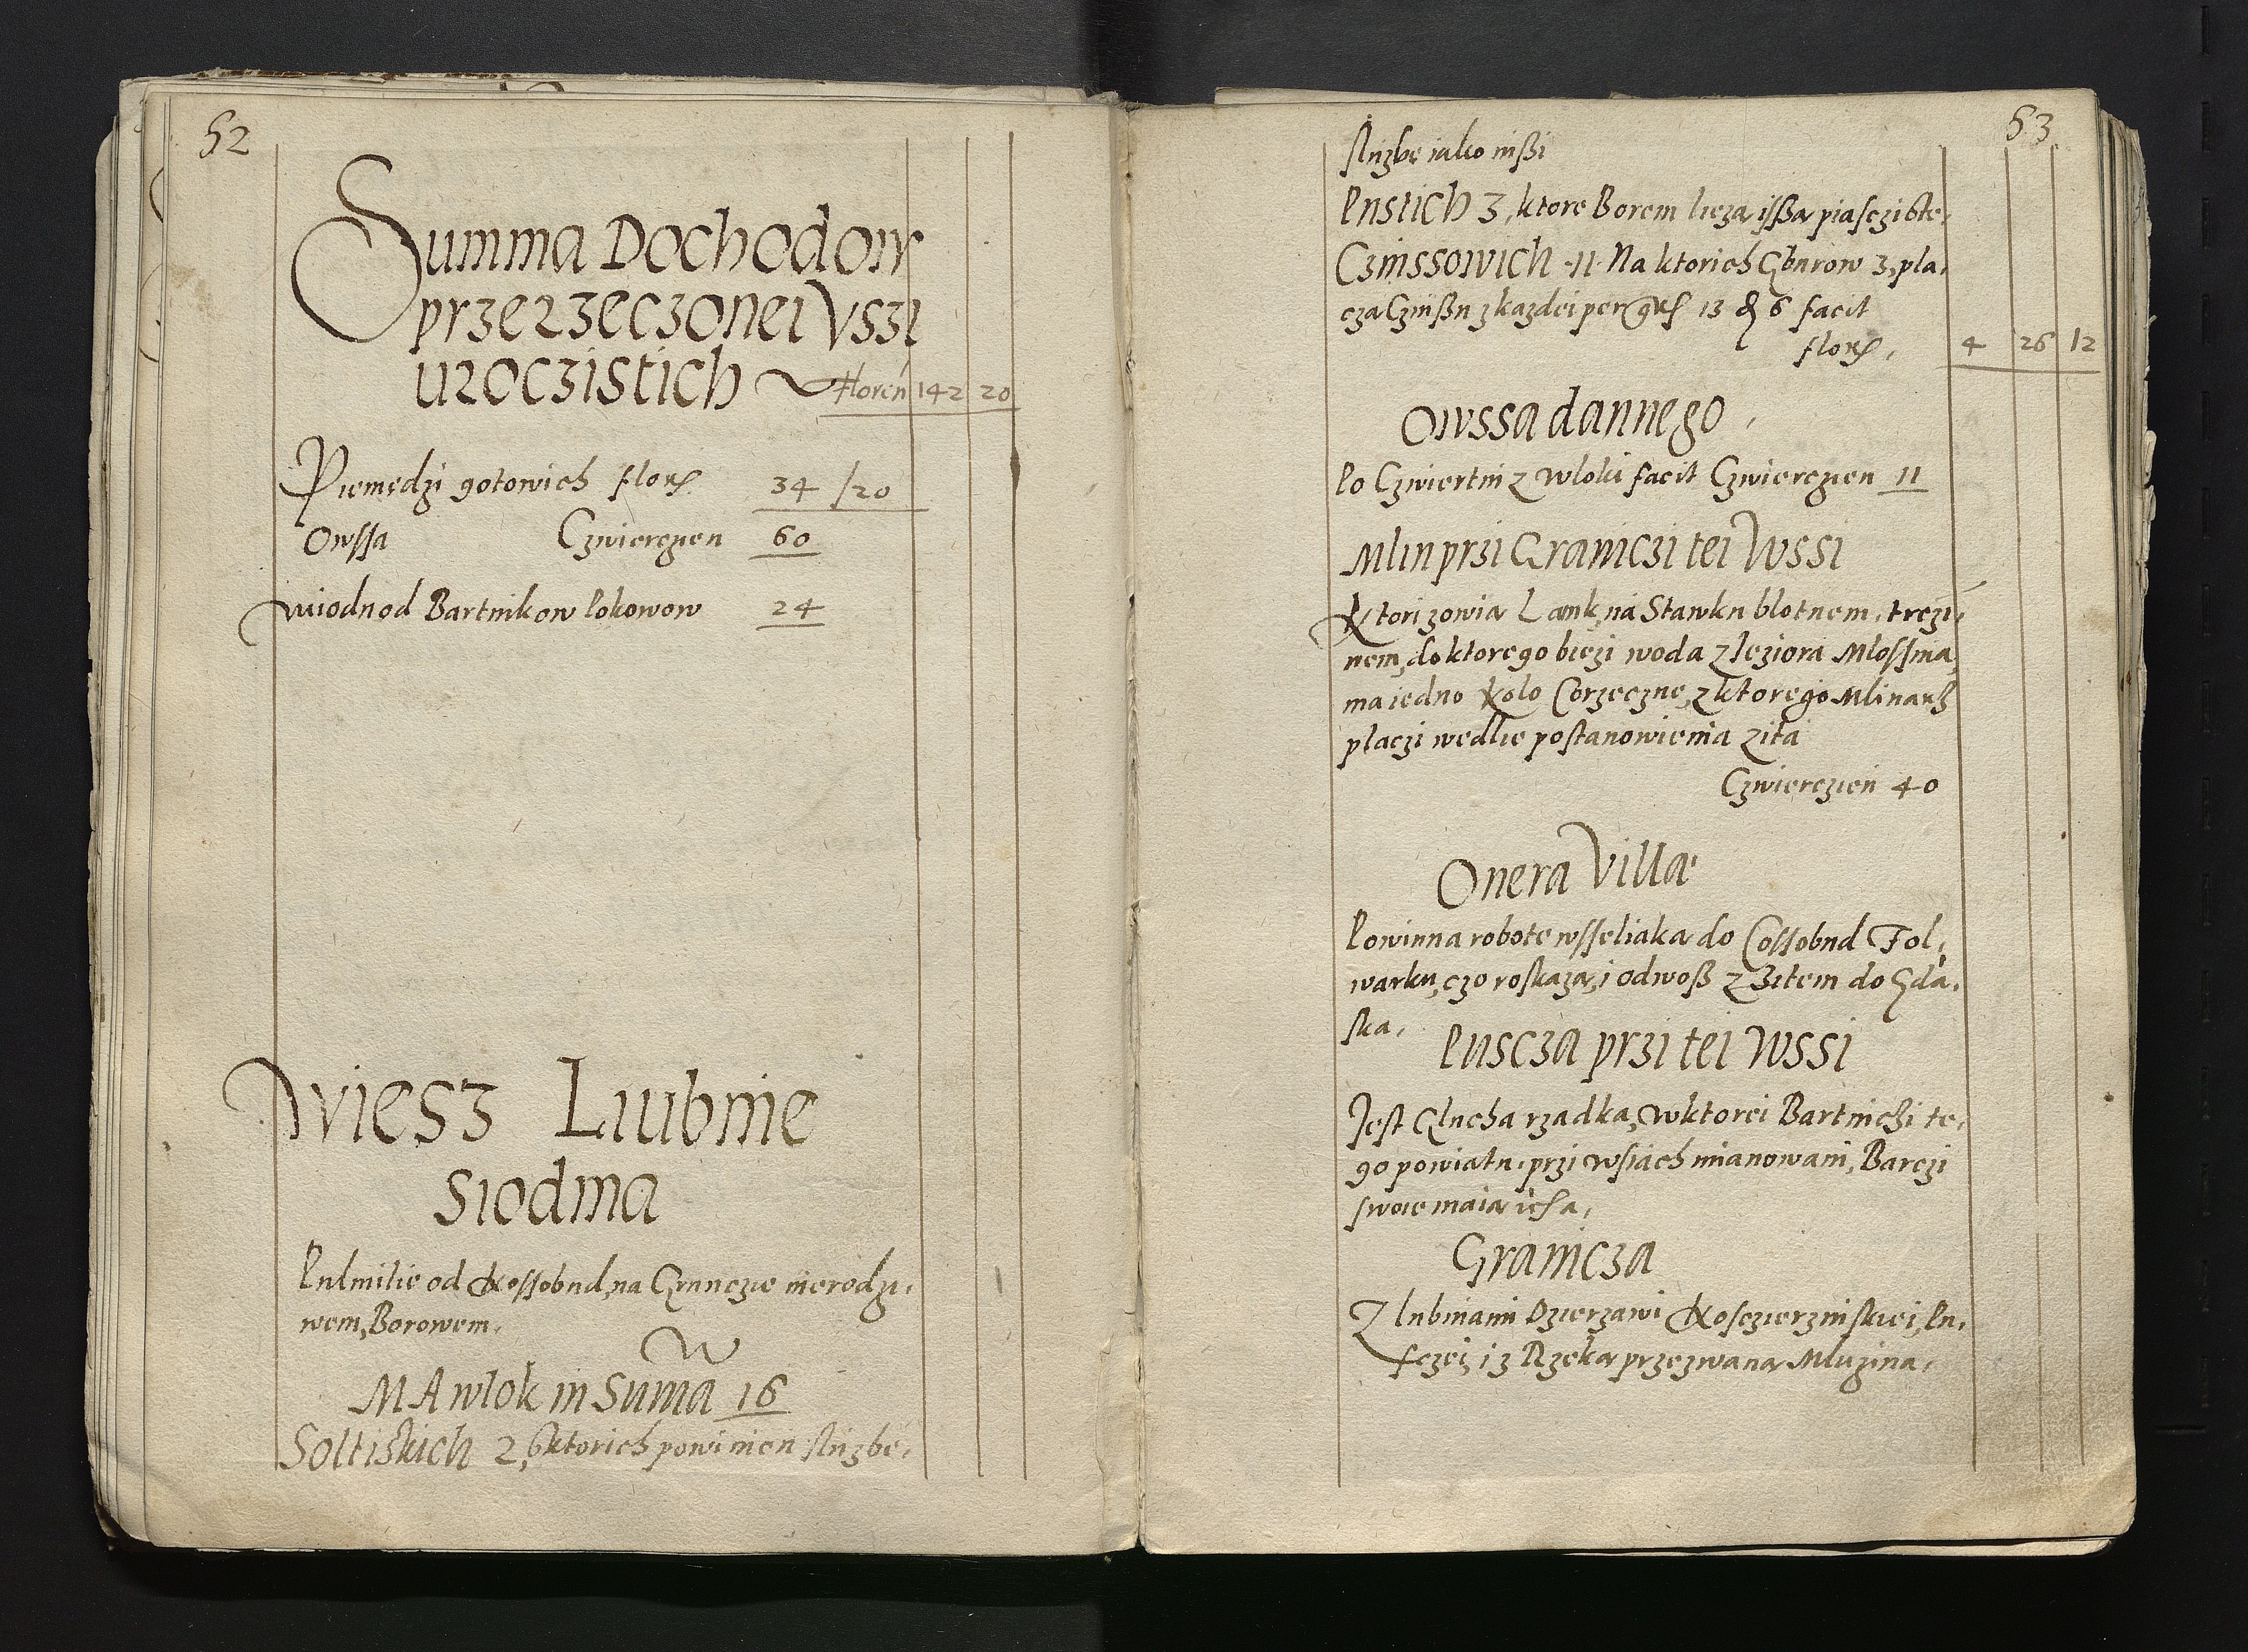 52
Summa Dochodow
przerzeczonei Vszi
uroczistich Floren 142 20
Pieniędzi gotowich flor. 34 /20
Owssa Czwierczien 60
Miodu od Bartnikow Pokowow 24
Wiesz Liubnie
Siodma
Pulmilie od Kossobud, na Grunczie nierodzi,
wem, Borowem,
MA wlok in Suma 16
Soltiskich 2, sktorich powinien sluzbę,
53
sluzbę iako inßi
Pustich 3, ktore Borem lieza ißa piasczißte,
Czinssowich 11 Na ktorich Gburow 3, pla,
cza Czinßu z kazdei per 13 6 facit
flor. 4 26 12
Owssa dannego,
Po Czwiertni z wloki facit Czwierczien 11
Mlin przi Graniczi tei Wssi
Ktori zowia Lank, na Stawku blotnem, trczi,
nem, do ktorego bieżi woda z Ieziora Mlossina
ma iedno Kolo Corzeczne, z ktorego Mlinarz
placzi wedlie postanowienia Zita
Czwierczien 40
Onera Villæ
Powinna robote wsseliaka do Cossobud Fol,
warku, czo roskaza, i odwoß z Zitem do Gda,
ska,
Puscza przi tei Wssi
Jest Glucha rzadka, wktorei Bartniczi te,
go powiatu, przi wsiach mianowani, Barczi
swoie maia
Granicza
Z lubniami Dzierzawi Kosczierzinskiei, Pu,
sczei, i z Rzeka przezwana Mluzina,